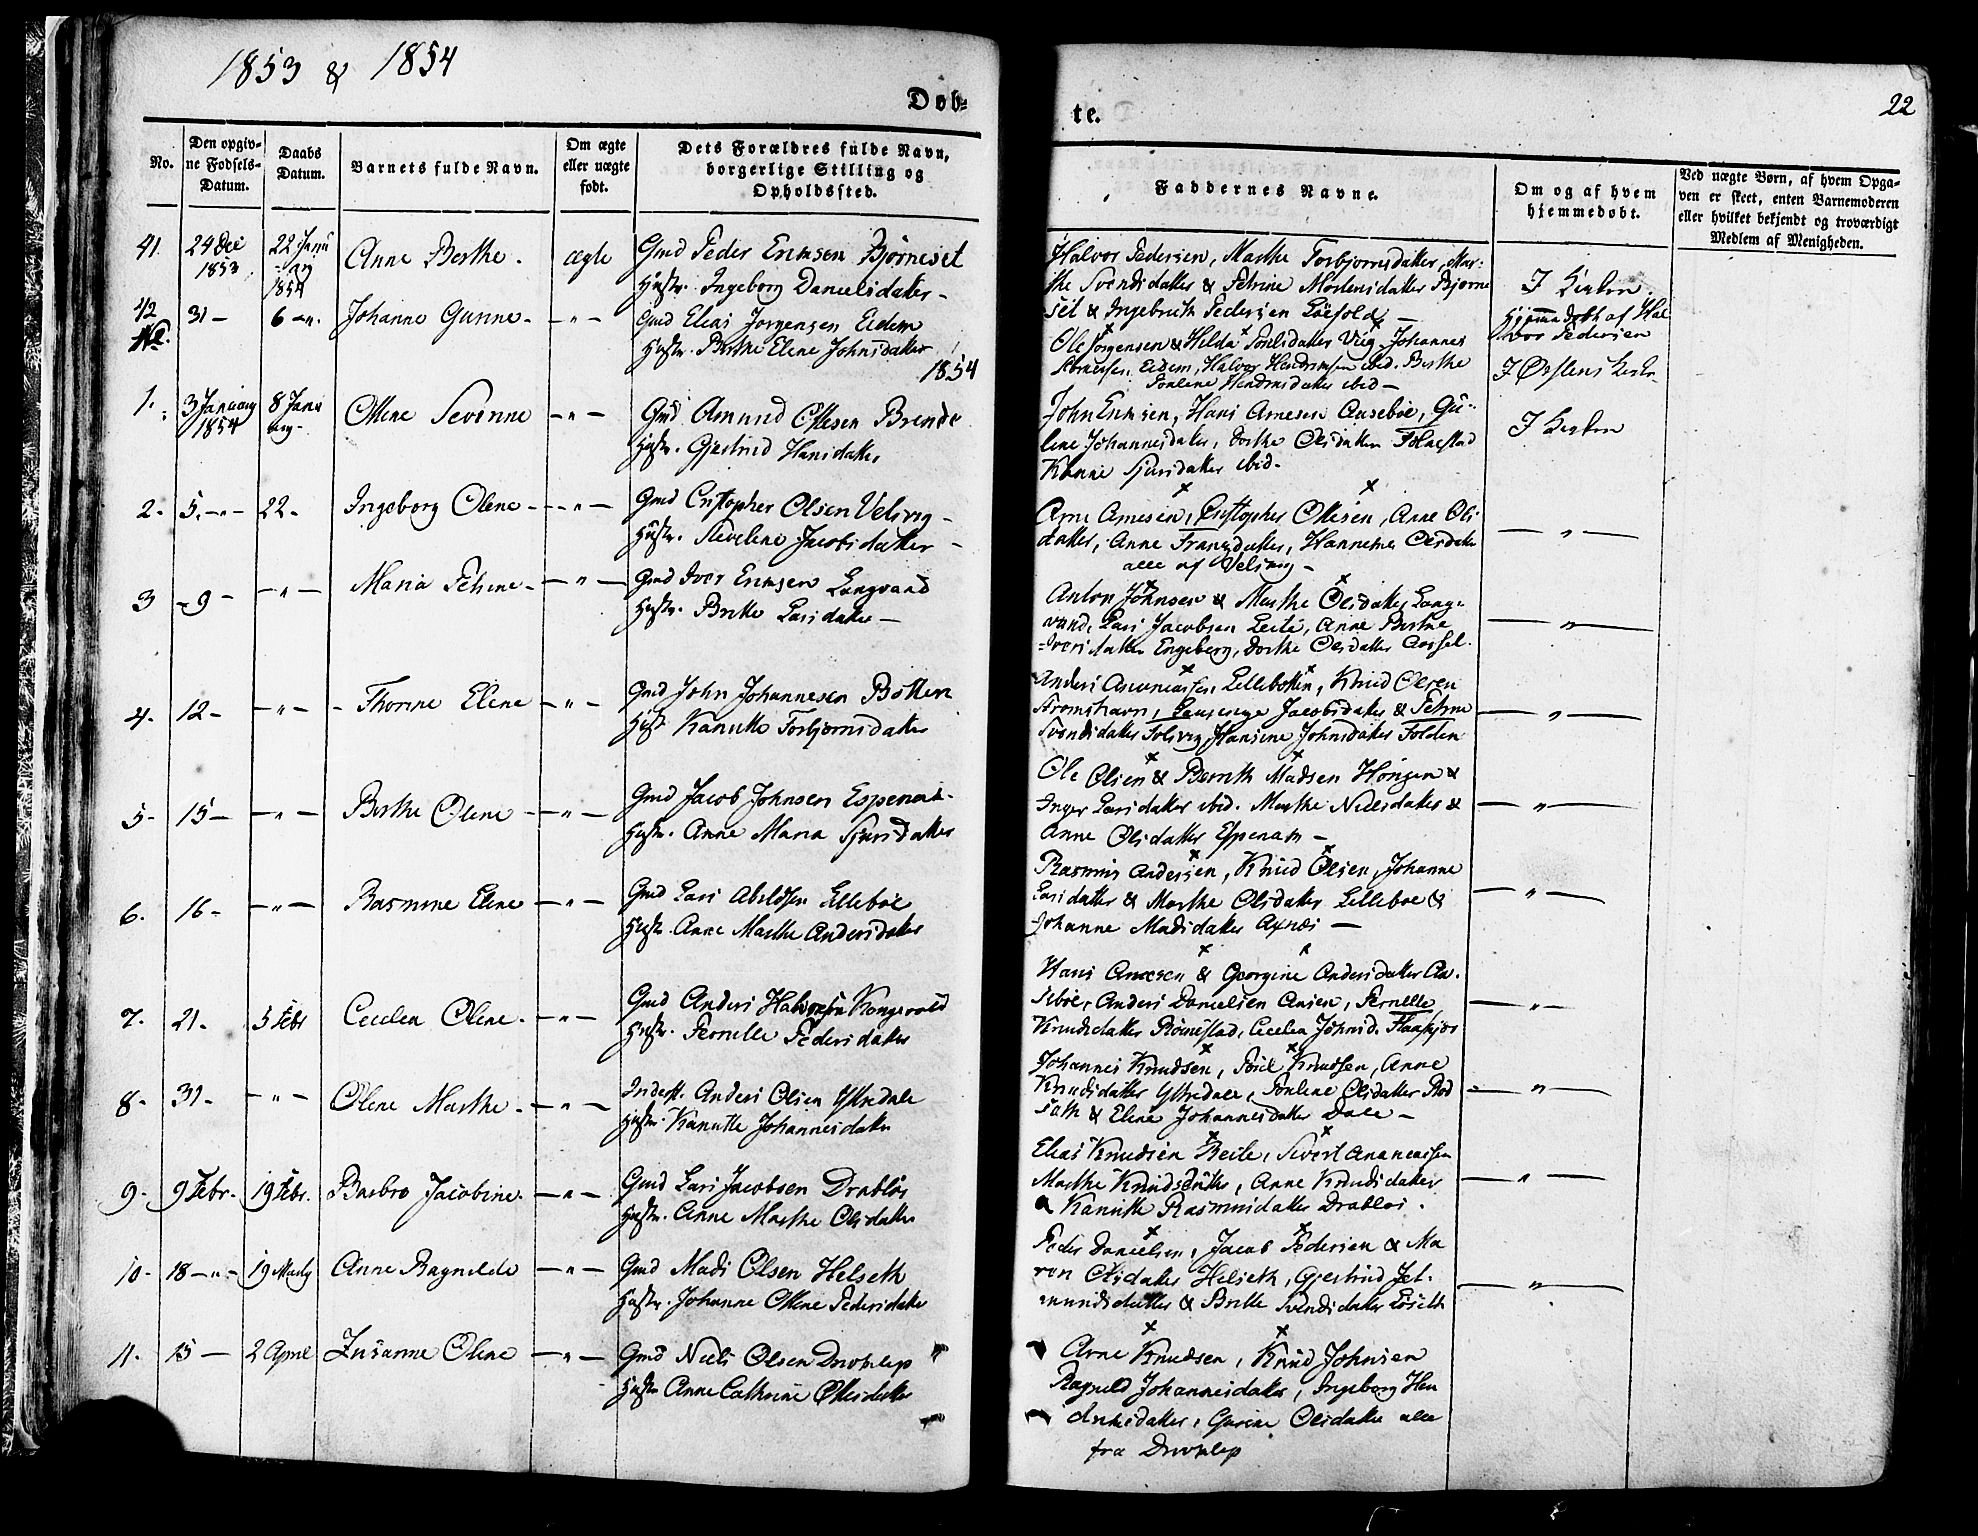 1853 & 1854
22
Døb-
te.
No.
Den opgiv-
ne Fødsels-
Datum.
Daabs
Datum.
Barnets fulde Navn.
Om ægte
eller uægte
født.
Dets Forældres fulde Navn,
borgerlige Stilling og
Opholdssted.
Faddernes Navne.
Om og af hvem
hjemmedøbt.
Ved uægte Børn, af hvem Opga-
ven er skeet, enten Barnemoderen
eller hvilket bekjendt og troværdigt
Medlem af Menigheden.
41. 24 Dec 22 Janu Anne Berthe. ægte Gmd Peder Ericksen Bjørneset
1853 ar
1854 Hustr. Ingeborg Danielsdatter -
Halvor Pedersen, Marthe Torbjørnsdatter, Mar-
the Svendsdatter & Petrine Mortensdatter Bjørne
set & Ingebrigt Pedersen
I Kirken.
42 31 - 6 -"- Johanne Gurine - - " - Gmd Elias Jørgensen Eidem
Hustr. Berthe Eline Johnsdatter
Ole Jørgensen & Hilda Poulsdatter Viig, Johannes
Eidem, Halvor Hendriksen ibid. Berthe
Pouline Hendriksdatter ibid -
Hjemmedøbt af Hal
vor Pedersen
I Ørstens Kirke
1854
1. 3 January 8 Janu Ottine Severine - " - Gmd Amund Ottesen Brende
1854 ary - Hustr. Gjertrud Hansdatter
John Ericksen, Hans Arnesen Aasebøe, Gu-
line Johannesdatter, Dorthe Olsdatter Folkestad
Sjursdatter ibid -
I Kirken
2. 5. -"- 22 - Ingeborg Oline - - " - Gmd Cristopher Olsen Velsvig -
Hustr. Severine Jacobsdatter -
Arne Arnesen, Cristopher Ottesen, Anne Ols
datter, Anne Frantzdatter, Olsdatter
alle af Velsvig -
- " -
3 - 9 - - " - Maria Petrine - - " - Gmd Iver Ericksen Langvand
Hustr. Berthe Larsdatter -
Anton Johnsen & Marthe Olsdatter Lang-
vand, Lars Jacobsen Leite, Anne Berthe
Iversdatter Engeberg, Dorthe Olsdatter
- " -
4. 12 - - " - - Thorine Eline - " - Gmd John Johannesen Botten
Hustr Kanutte Torbjørnsdatter
Anders Ananiassen Lillebotten, Knud Olsen
Strømshavn, Jacobsdatter & Petrine
Svendsdatter Folsvig, Hansine Johnsdatter Folden
- " -
5 - 15 - - " - Berthe Oline - - " - Gmd Jacob Johnsen Espenæs.
Hustr. Anne Maria Sjursdatter
Ole Olsen & Bernth Madsen &
Inger Larsdatter ibid. Marthe Nielsdatter &
Anne Olsdatter Espenæs -
- " -
6. 16 - - " - Rasmine Eline - " - Gmd Lars Abelsen Lillebøe
Hustr. Anne Marthe Andersdatter
Rasmus Andersen, Knud Olsen, Johanne
Larsdatter & Marthe Olsdatter Lillebøe &
Johanne Madsdatter Axnæs -
- " -
7. 21. 5 Febr Cecilia Oline - - " - Gmd Anders Halvorsen Kongsvold
Hustr. Pernille Pedersdatter
Hans Arnesen & Georgine Andersdatter Aa-
sebøe, Anders Danielsen Aasen, Pernille
Knudsdatter Rømestad, Cecilia Johnsd.
- " -
8 - 31 - - " - Oline Marthe - - " - Inderst. Anders Olsen Ystredale
Hustr. Kanutte Johannesdatter
Johannes Knudsen, Poul Knudsen, Anne
Knudsdatter Ystredale, Pouline Olsdatter Rod
sæth & Eline Johannesdatter Dale -
- " -
9 - 9 Febr. 19 Febr. Barbro Jacobine - " - Gmd Lars Jacobsen Drabløs
Hustr. Anne Marthe Olsdatter
Elias Knudsen Velle, Sivert Ananiassen
Marthe Knudsdatter, Anne Knudsdatter
& Kanutte Rasmusdatter Drabløs.
- " -
10 - 18 -"- 19 Marts Anne Ragnilde - " - Gmd Mads Olsen Helseth
Hustr. Johanne Ottine Pedersdatter
Peder Danielsen, Jacob Pedersen & Ma
ren Olsdatter Helseth, Gjertrud Jet-
mundsdatter & Britte Svendsdatter Løseth
- " -
11. 15 - 2 April Zusanne Oline - " - Gmd Niels Olsen Drotslep
Hustr Anne Cathrine Ottesdatter
Arne Knudsen, Knud Johnsen
Ragnild Johannesdatter, Ingeborg Hen
driksdatter, Gurine Olsdatter alle
fra Drotslep